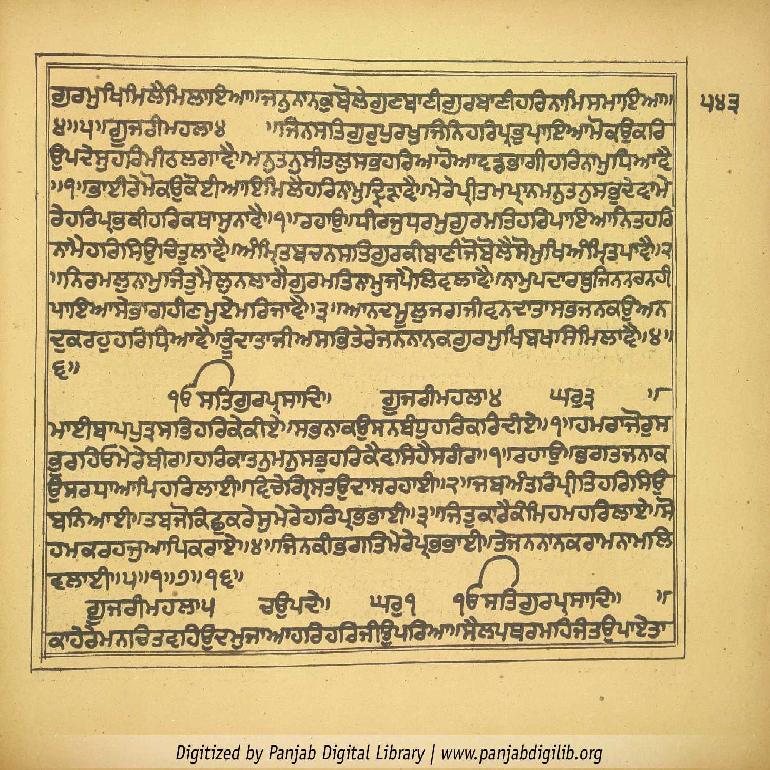 ਗੁਰਮੁਖਿਮਿਲੈਮਿਲਾਇਆ॥ਜਨੁਨਾਨਕੁਬੋਲੇਗੁਣਬਾਣੀਗੁਰਬਾਣੀਹਰਿਨਾਮਿਸਮਾਇਆ॥ ੫੪੩
੪॥੫॥ਗੂਜਰੀਮਹਲਾ੪ ॥ਜਿਨਸਤਿਗੁਰੁਪੁਰਖੁਜਿਨਿਹਰਿਪ੍ਰਭੁਪਾਇਆਮੋਕਉਕਰਿ
ਉਪਦੇਸੁਹਰਿਮੀਠਲਗਾਵੈ॥ਮਨੁਤਨੁਸੀਤਲੁਸਭਹਰਿਆਹੋਆਵਡਭਾਗੀਹਰਿਨਾਮੁਧਿਆਵੈ
॥੧॥ਭਾਈਰੇਮੋਕਉਕੋਈਆਇਮਿਲੈਹਰਿਨਾਮੁਦ੍ਰਿੜਾਵੈ॥ਮੇਰੇਪ੍ਰੀਤਮਪ੍ਰਾਨਮਨੁਤਨੁਸਭੁਦੇਵਾਮੇ
ਰੇਹਰਿਪ੍ਰਭਕੀਹਰਿਕਥਾਸੁਨਾਵੈ॥੧॥ਰਹਾਉ॥ਧੀਰਜੁਧਰਮੁਗੁਰਮਤਿਹਰਿਪਾਇਆਨਿਤਹਰਿ
ਨਾਮੈਹਰਿਸਿਉਚਿਤੁਲਾਵੈ॥ਅੰਮ੍ਰਿਤਬਚਨਸਤਿਗੁਰਕੀਬਾਣੀਜੋਬੋਲੈਸੋਮੁਖਿਅੰਮ੍ਰਿਤੁਪਾਵੈ॥੨
॥ਨਿਰਮਲੁਨਾਮੁਜਿਤੁਮੈਲੁਨਲਾਗੈਗੁਰਮਤਿਨਾਮੁਜਪੈਲਿਵਲਾਵੈ॥ਨਾਮੁਪਦਾਰਥੁਜਿਨਨਰਨਹੀ
ਪਾਇਆਸੇਭਾਗਹੀਣਮੁਏਮਰਿਜਾਵੈ॥੩॥ਆਨਦਮੂਲੁਜਗਜੀਵਨਦਾਤਾਸਭਜਨਕਉਅਨ
ਦੁਕਰਹੁਹਰਿਧਿਆਵੈ॥ਤੂੰਦਾਤਾਜੀਅਸਭਿਤੇਰੇਜਨਨਾਨਕਗੁਰਮੁਖਿਬਖਸਿਮਿਲਾਵੈ॥੪॥
੬॥
ੴਸਤਿਗੁਰਪ੍ਰਸਾਦਿ॥ ਗੂਜਰੀਮਹਲਾ੪ ਘਰੁ੩ ॥
ਮਾਈਬਾਪਪੁਤ੍ਰਸਭਿਹਰਿਕੇਕੀਏ॥ਸਭਨਾਕਉਸਨਬੰਧੁਹਰਿਕਰਿਦੀਏ॥੧॥ਹਮਰਾਜੋਰੁਸ
ਭੁਰਹਿਓਮੇਰੇਬੀਰ॥ਹਰਿਕਾਤਨੁਮਨੁਸਭੁਹਰਿਕੈਵਸਿਹੈਸਰੀਰ॥੧॥ਰਹਾਉ॥ਭਗਤਜਨਾਕ
ਉਸਰਧਾਆਪਿਹਰਿਲਾਈ॥ਵਿਚੇਗ੍ਰਿਸਤਉਦਾਸਰਹਾਈ॥੨॥ਜਬਅੰਤਰਿਪ੍ਰੀਤਿਹਰਿਸਿਉ
ਬਨਿਆਈ॥ਤਬਜੋਕਿਛੁਕਰੇਸੁਮੇਰੇਹਰਿਪ੍ਰਭਭਾਈ॥੩॥ਜਿਤੁਕਾਰੈਕੰਮਿਹਮਹਰਿਲਾਏ॥ਸੋ
ਹਮਕਰਹਜੁਆਪਿਕਰਾਏ॥੪॥ਜਿਨਕੀਭਗਤਿਮੇਰੇਪ੍ਰਭਭਾਈ॥ਤੇਜਨਨਾਨਕਰਾਮਨਾਮਲਿ
ਵਲਾਈ॥੫॥੧॥੭॥੧੬॥
ਗੂਜਰੀਮਹਲਾ੫ ਚਉਪਦੇ॥ ਘਰੁ੧ ੴਸਤਿਗੁਰਪ੍ਰਸਾਦਿ॥ ॥
ਕਾਹੇਰੇਮਨਚਿਤਵਹਿਉਦਮੁਜਾਆਹਰਿਹਰਿਜੀਉਪਰਿਆ॥ਸੈਲਪਥਰਮਹਿਜੰਤਉਪਾਏਤਾ
Digitized by Panjab Digital Library | www.panjabdigilib.org